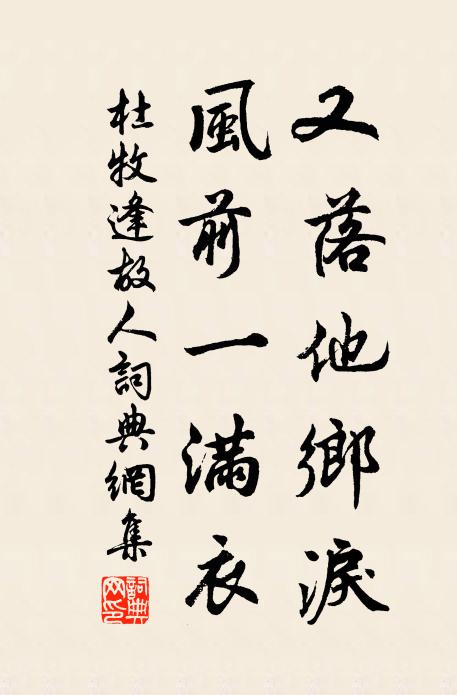 又落他鄉淚
風前一滿衣
杜牧逢故人詞典網集
詞典网印